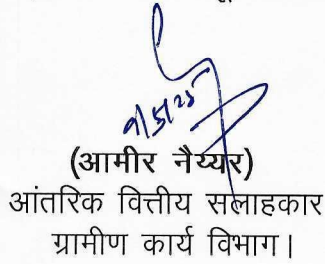 (आमीर नैय्यर)
आंतरिक वित्तीय सलाहकार
ग्रामीण कार्य विभाग।